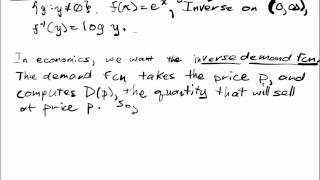 {y : y ≠ 0}. f(x) = e^x, Inverse on (0, ∞),
f^-1(y) = log y.
In economics, we want the inverse demand fcn.
The demand fcn takes the price p, and
computes D(p), the quantity that will sell
at price p. So,